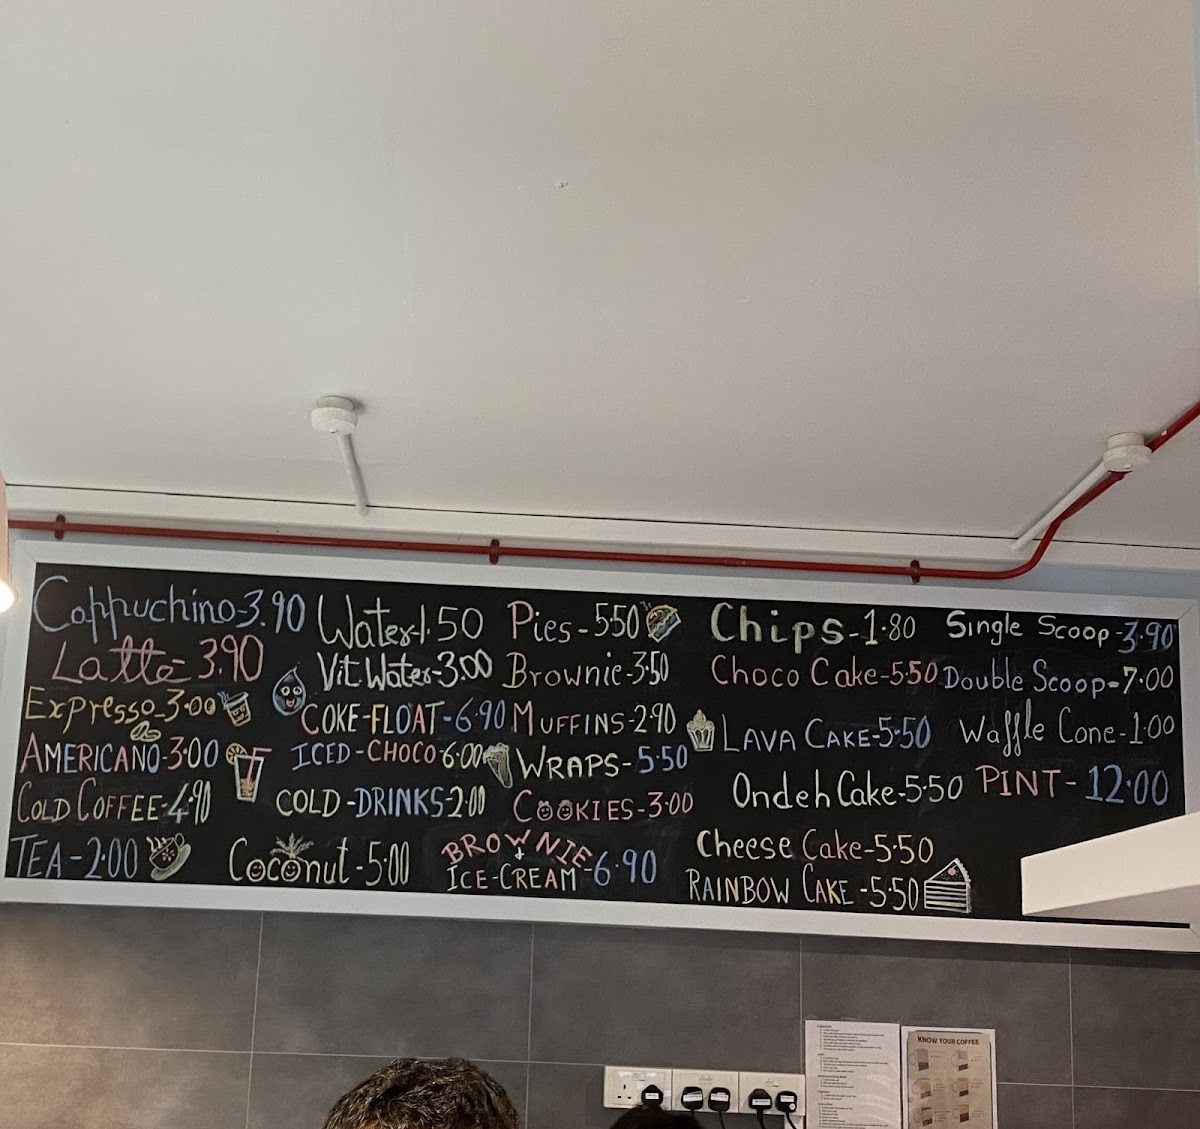 Cappuchino-3.90
Latte-3.90
Expresso-3.00
AMERICANO-3.00
COLD COFFEE-4.90
TEA-2.00
Water-1.50
Vit Water-3.00
COKE-FLOAT-6.90
ICED-CHOCO-6.00
COLD-DRINKS-2.00
Coconut-5.00
Pies-5.50
Brownie-3.50
MUFFINS-2.90
WRAPS-5.50
COOKIES-3.00
BROWNIE
+
ICE-CREAM-6.90
Chips-1.80
Choco Cake-5.50
LAVA CAKE-5.50
Ondeh Cake-5.50
Cheese Cake-5.50
RAINBOW CAKE-5.50
Single Scoop-3.90
Double Scoop-7.00
Waffle Cone-1.00
PINT-12.00
KNOW YOUR COFFEE